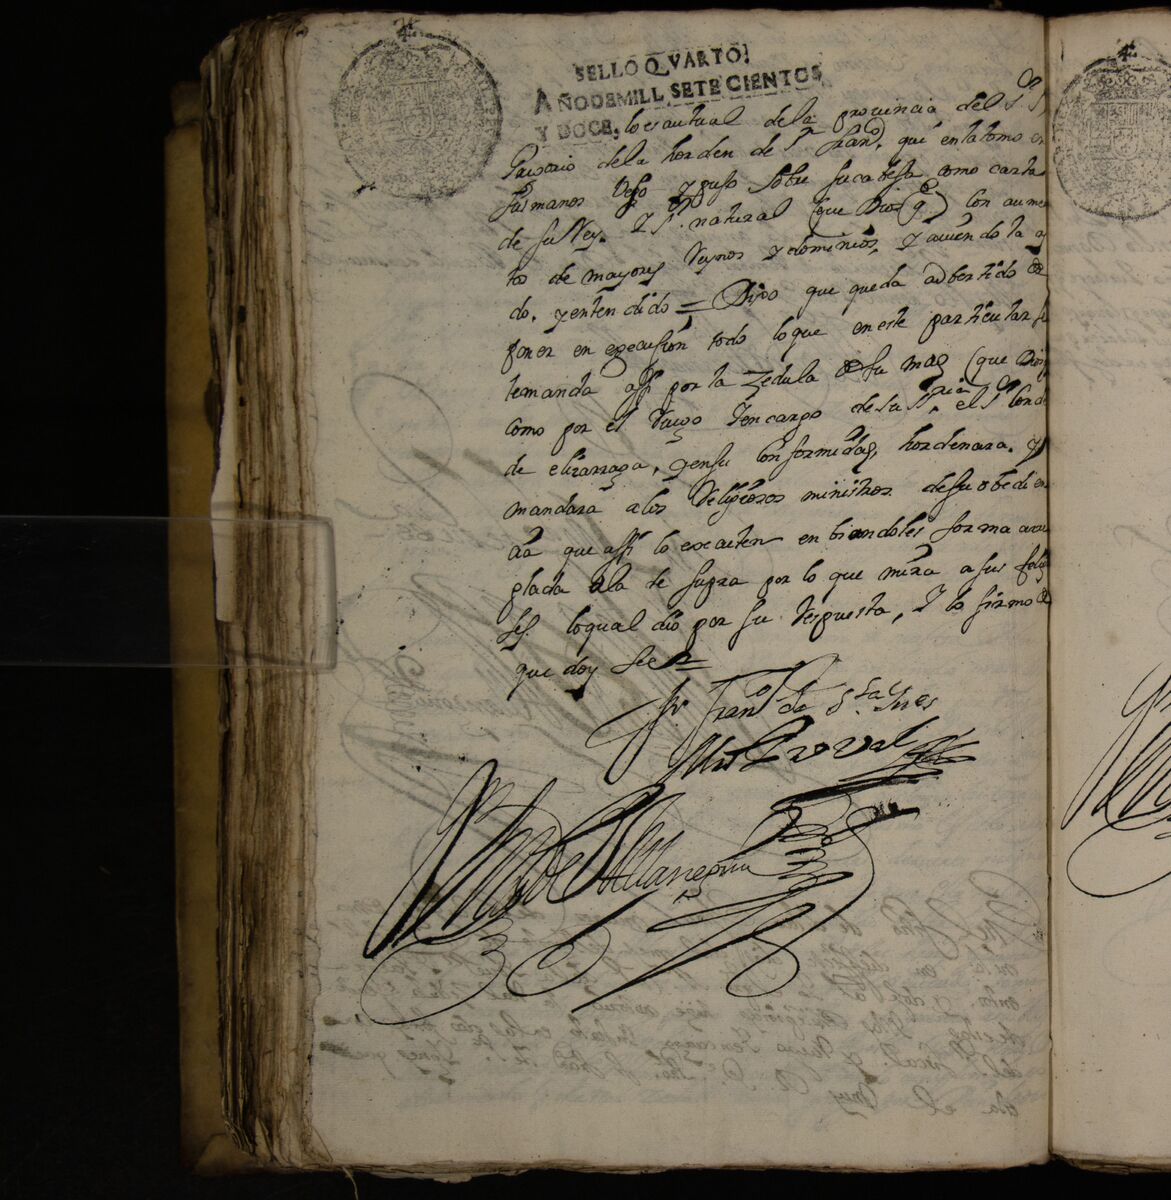 SELLO QVARTO,
AÑO DE MILL, SETECIENTOS,
Y DOCE,
lo es autual de la provincia del Sr Sn
Gregorio de la horden de Sn Franco, que en la tomo en
sus manos beso y puso sobre su cabesa como carta
de su Rey. Y Sr. natural (que Dios ge) con aumen
to de mayores Reynos y dominios, y auiendola
do, y entendido = Dixo que queda adbertido de
poner en execusion todo lo que en este particular se
le manda assi por la Zedula de su Magd (que Dios
como por el Ruego y encargo de su Sria. el Sr Conde
de elizarraga, y en su conformidad, hordenara. y
mandara a los Religiosos ministros de su obedien
cia que assi lo executen enbiandoles forma arre
glada a la de supra por lo que mira a sus felig
ses. lo qual dio por su respuesta, Y lo firmo de
que doy fee =
Fr. Franco de Sta Ynes
Mro Proual